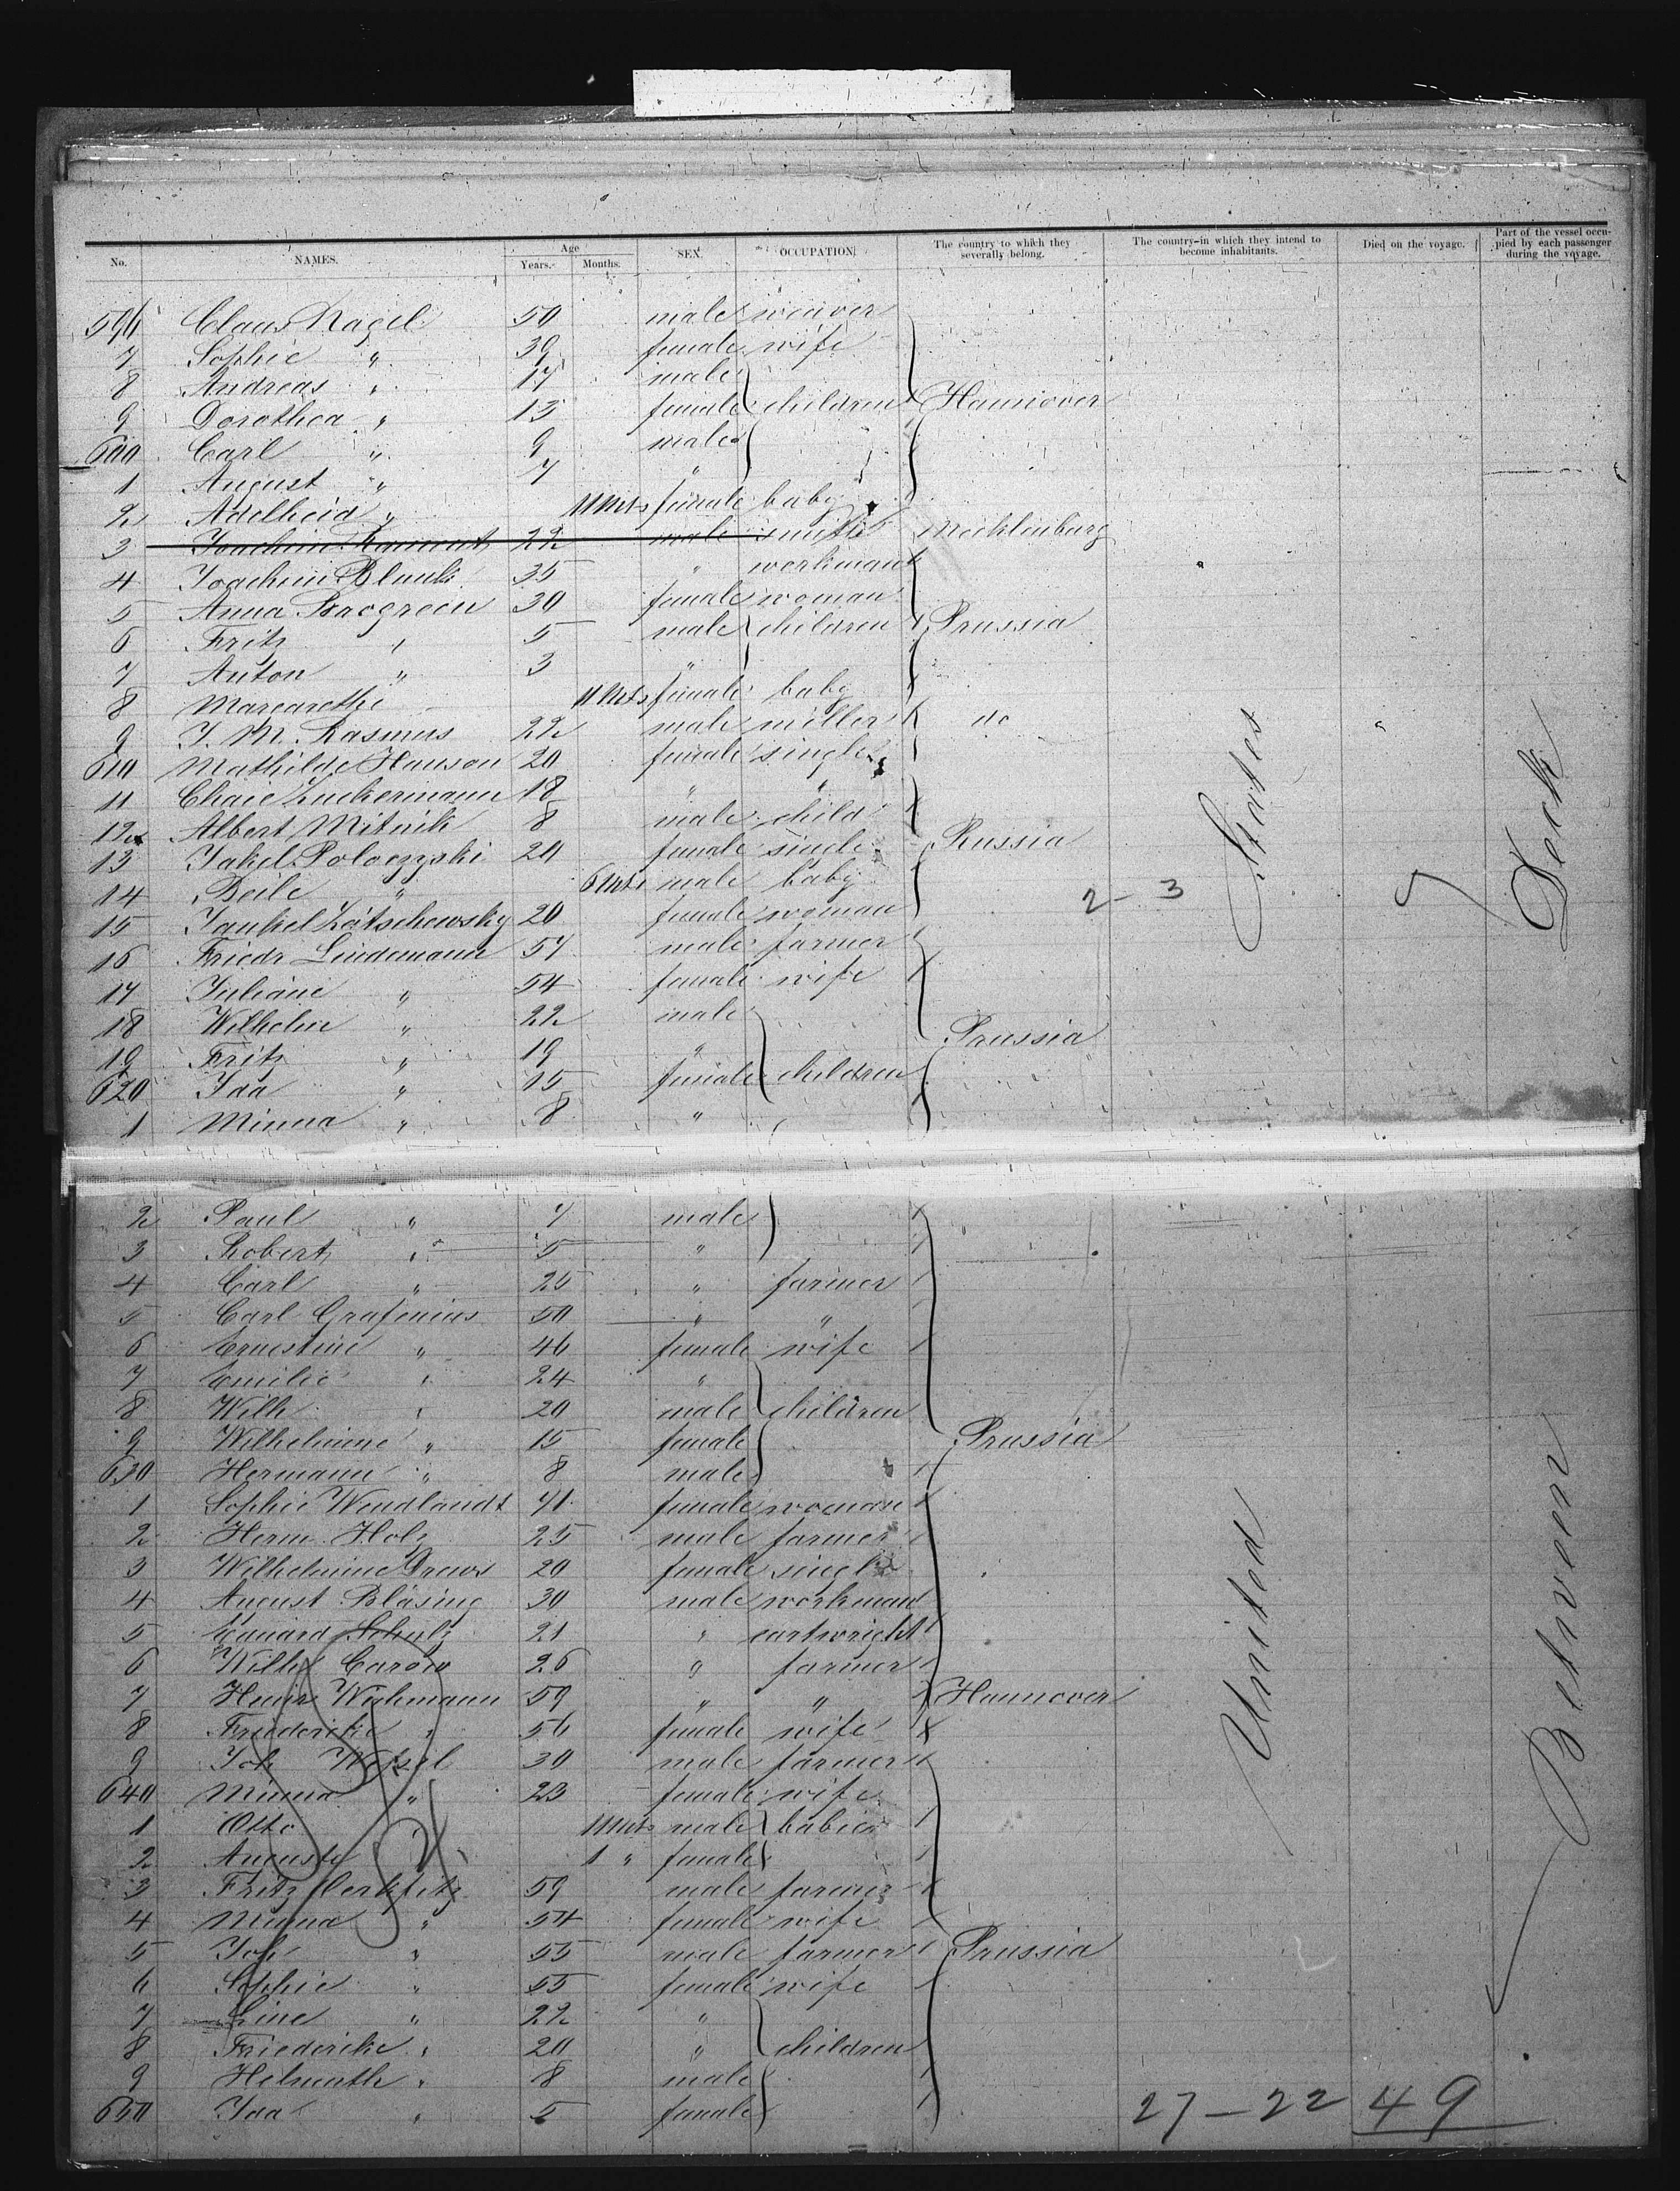 No. NAMES. Age Years. Months. SEX. OCCUPATION. The country to which they severally belong. The country in which they intend to become inhabitants. Died on the voyage. Part of the vessel occupied by each passenger during the voyage.
596 Claus Nagel 50 male weaver
7 Sophie " 39 female wife
8 Andreas " 17 male
9 Dorothea " 13 female children Hannover
600 Carl " 9 male
1 August " 7 "
2 Adelheid " 11 Mts female baby
3 Joachim 22 male smith Mecklenburg
4 Joachim Blunk 35 " workman
5 Anna 30 female woman
6 Fritz " 5 male children Prussia
7 Anton " 3 "
8 Margarethe 11 Mts female baby
9 J. M. Rasmus 22 male miller do
610 Mathilde Hanson 20 female single
11 Chaie Zuckermann 18 " "
12 Albert Mitnik 8 male child
13 Jakel Poloczyski 20 female single Russia
14 Beile " 6 Mts male baby
15 Jankel Latschewsky 20 female woman
16 Friedr Lindemann 57 male farmer
17 Juliane " 54 female wife
18 Wilhelm " 22 male
19 Fritz " 19 " Prussia
620 Ida " 15 female children
1 Minna " 8 "
2 Paul " 7 male
3 Robert " 5 "
4 Carl " 25 " farmer
5 Carl Grafenius 50 " "
6 Ernestine " 46 female wife
7 Emilie " 24 "
8 Wilh " 20 male children
9 Wilhelmine " 15 female Prussia
630 Hermann " 8 male
1 Sophie Wendlandt 41 female woman
2 Herm. Holz 25 male farmer
3 Wilhelmine Drews 20 female single
4 August Bläsing 30 male workman
5 Eduard Schulz 21 " cartwright
6 Wilh Carow 26 " farmer
7 Heinr Wichmann 59 " " Hannover
8 Friederike " 56 female wife
9 Joh Wetzel 30 male farmer
640 Minna " 23 female wife
1 Otto " 11 Mts male babies
2 Auguste 1 " female
3 Fritz 59 male farmer
4 Minna " 54 female wife
5 Joh " 55 male farmer Prussia
6 Sophie " 55 female wife
7 Line " 22 "
8 Friederike " 20 " children
9 Helmuth " 8 male
650 Ida " 5 female
2 - 3
United States
Between Deck
27 - 22 49